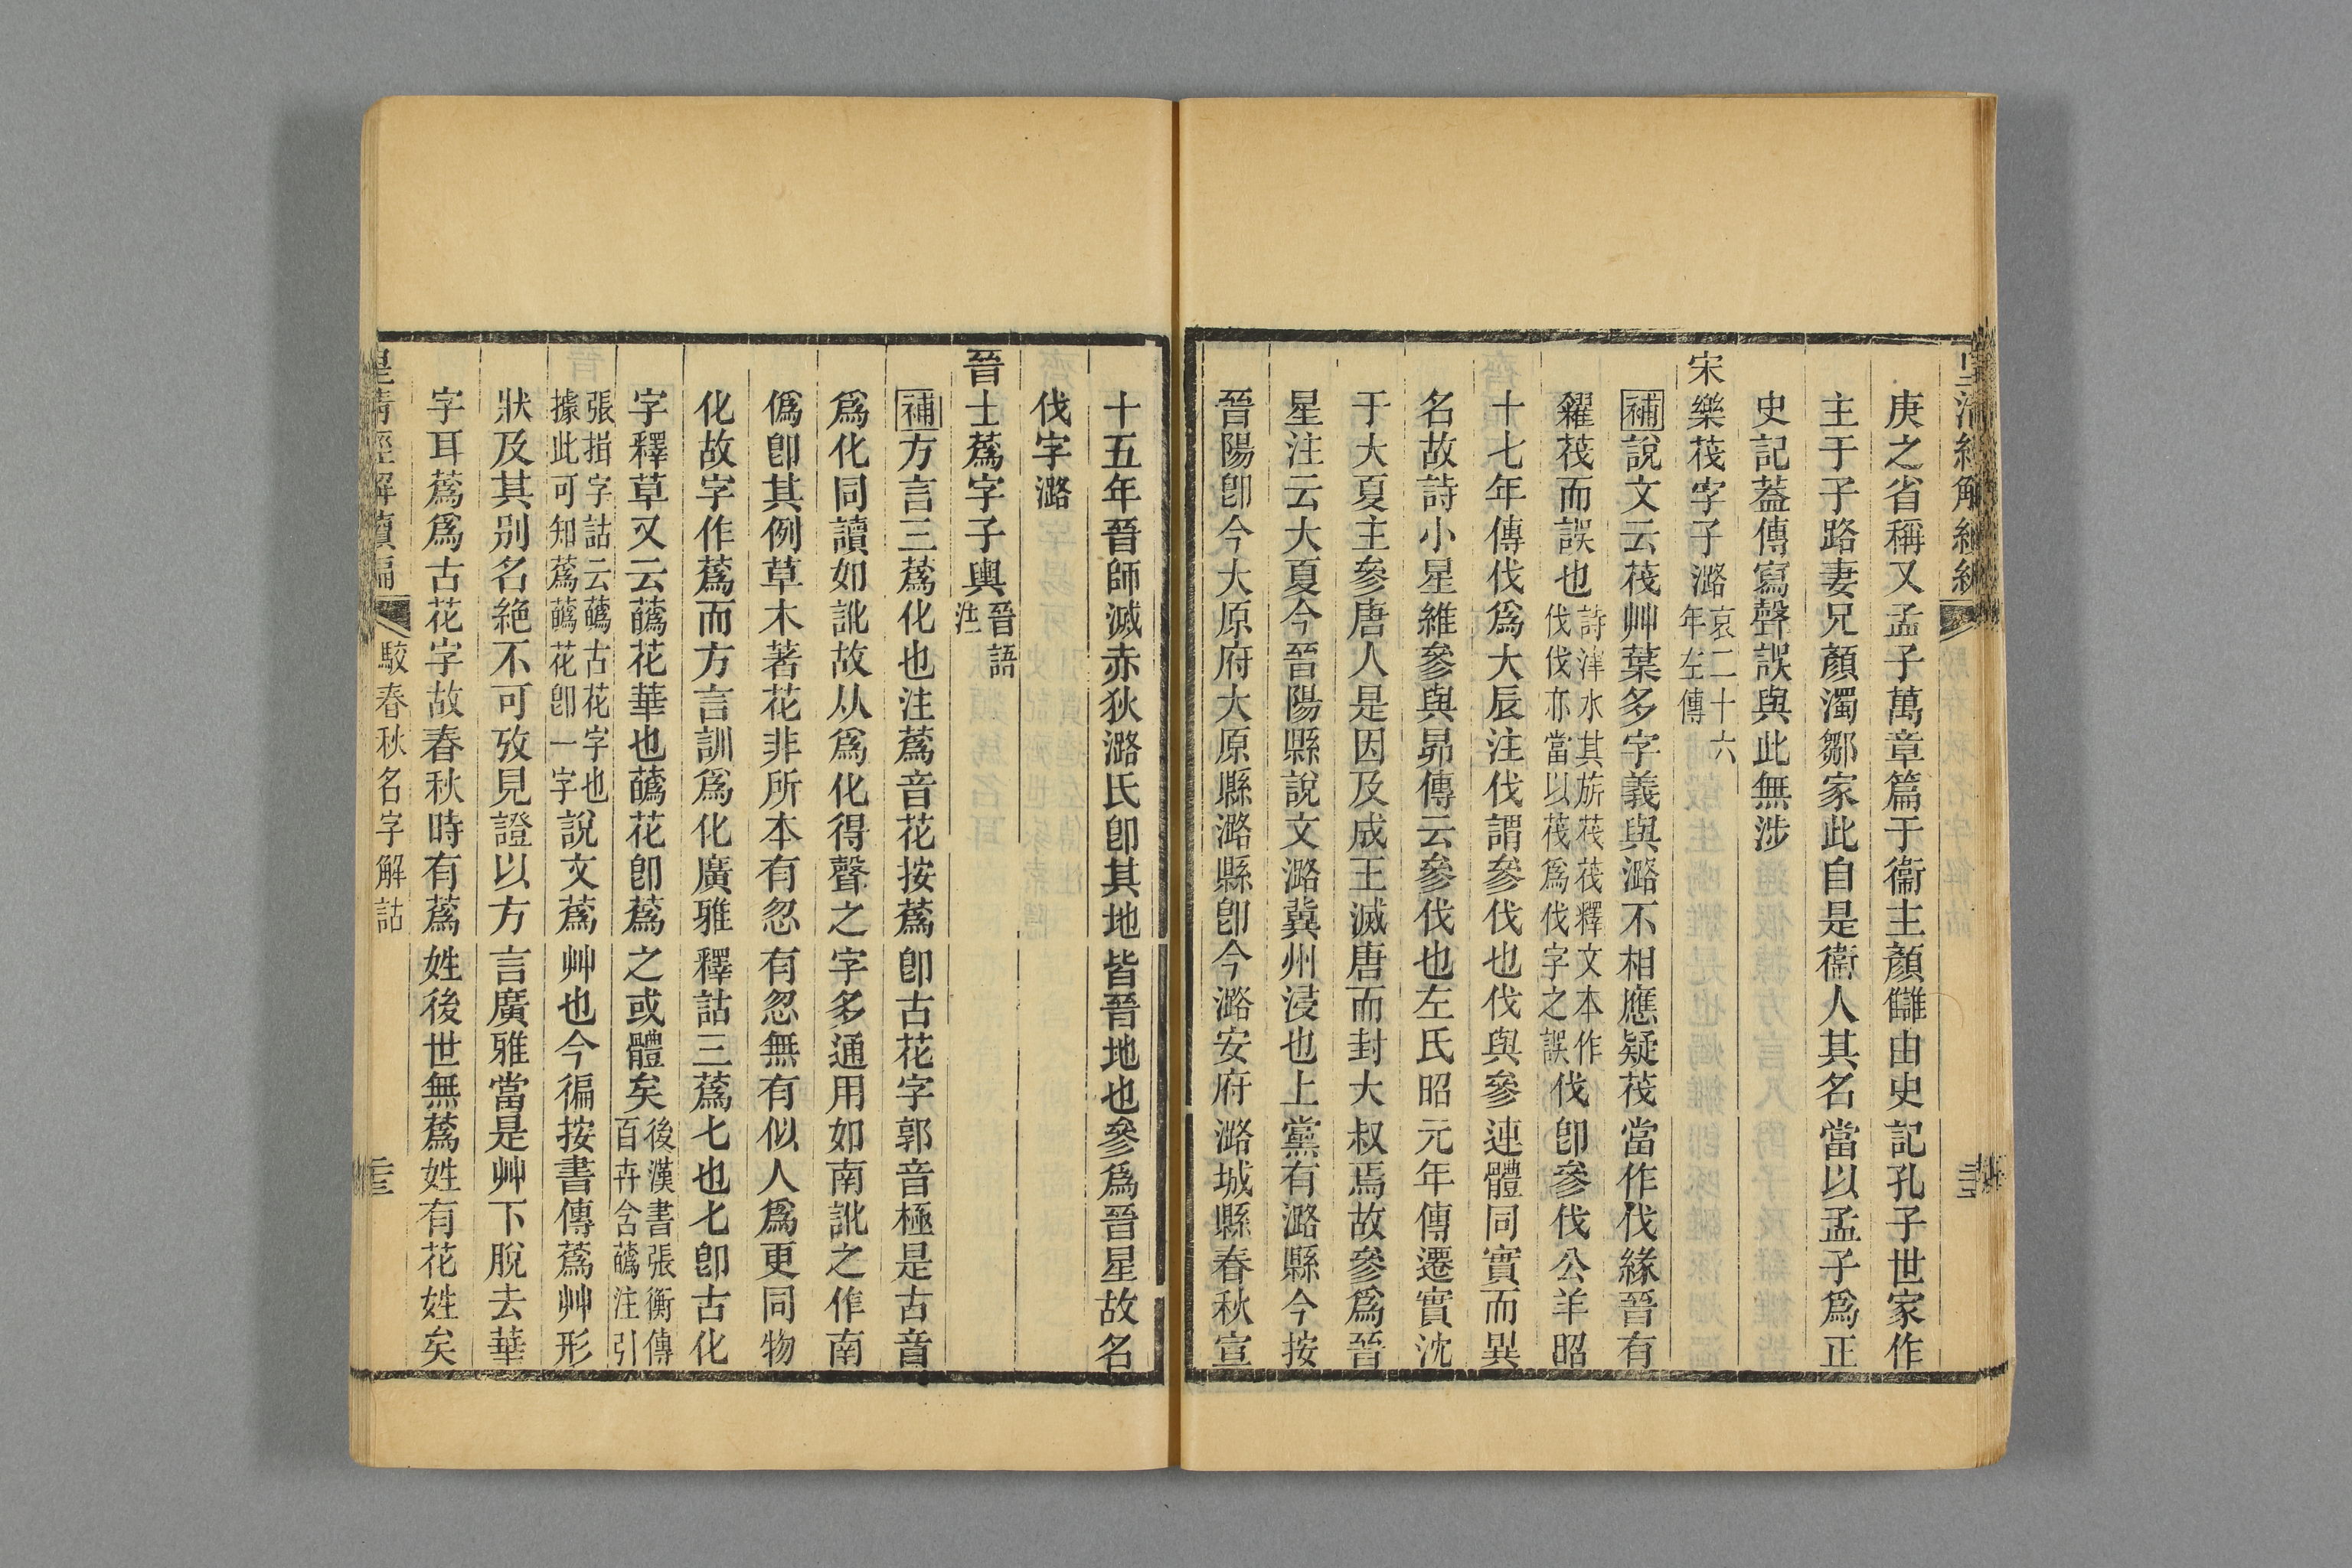 庚之省稱又孟子萬章篇于衞主顏讎由史記孔子世家作
主于子路妻兄顏濁鄒家此自是衞人其名當以孟子爲正
史記葢傳寫聲誤與此無涉
宋樂茷字子潞哀二十六年左傳
補說文云茷艸葉多字義與潞不相應疑茷當作伐緣晉有
糴茷而誤也詩泮水其旂茷茷釋文本作伐伐亦當以茷爲伐字之誤伐卽參伐公羊昭
十七年傳伐爲大辰注伐謂參伐也伐與參連體同實而異
名故詩小星維參與昴傳云參伐也左氏昭元年傳遷實沈
于大夏主參唐人是因及成王滅唐而封大叔焉故參爲晉
星注云大夏今晉陽縣說文潞冀州浸也上黨有潞縣今按
晉陽卽今大原府大原縣潞縣卽今潞安府潞城縣春秋宣
十五年晉師滅赤狄潞氏卽其地皆晉地也參爲晉星故名
伐字潞
晉士蔿字子輿晉語注
補方言三蔿化也注蔿音花按蔿卽古花字郭音極是古音
爲化同讀如訛故从爲化得聲之字多通用如南訛之作南
僞卽其例草木著花非所本有忽有忽無有似人爲更同物
化故字作蔿而方言訓爲化廣雅釋詁三蔿七也七卽古化
字釋草又云蘤花華也蘤花卽蔿之或體矣後漢書張衡傳百卉含蘤注引
張揖字詁云蘤古花字也據此可知蔿蘤花卽一字說文蔿艸也今徧按書傳蔿艸形
狀及其別名絶不可攷見證以方言廣雅當是艸下脫去華
字耳蔿爲古花字故春秋時有蔿姓後世無蔿姓有花姓矣
皇清經解續編
駮春秋名字解詁